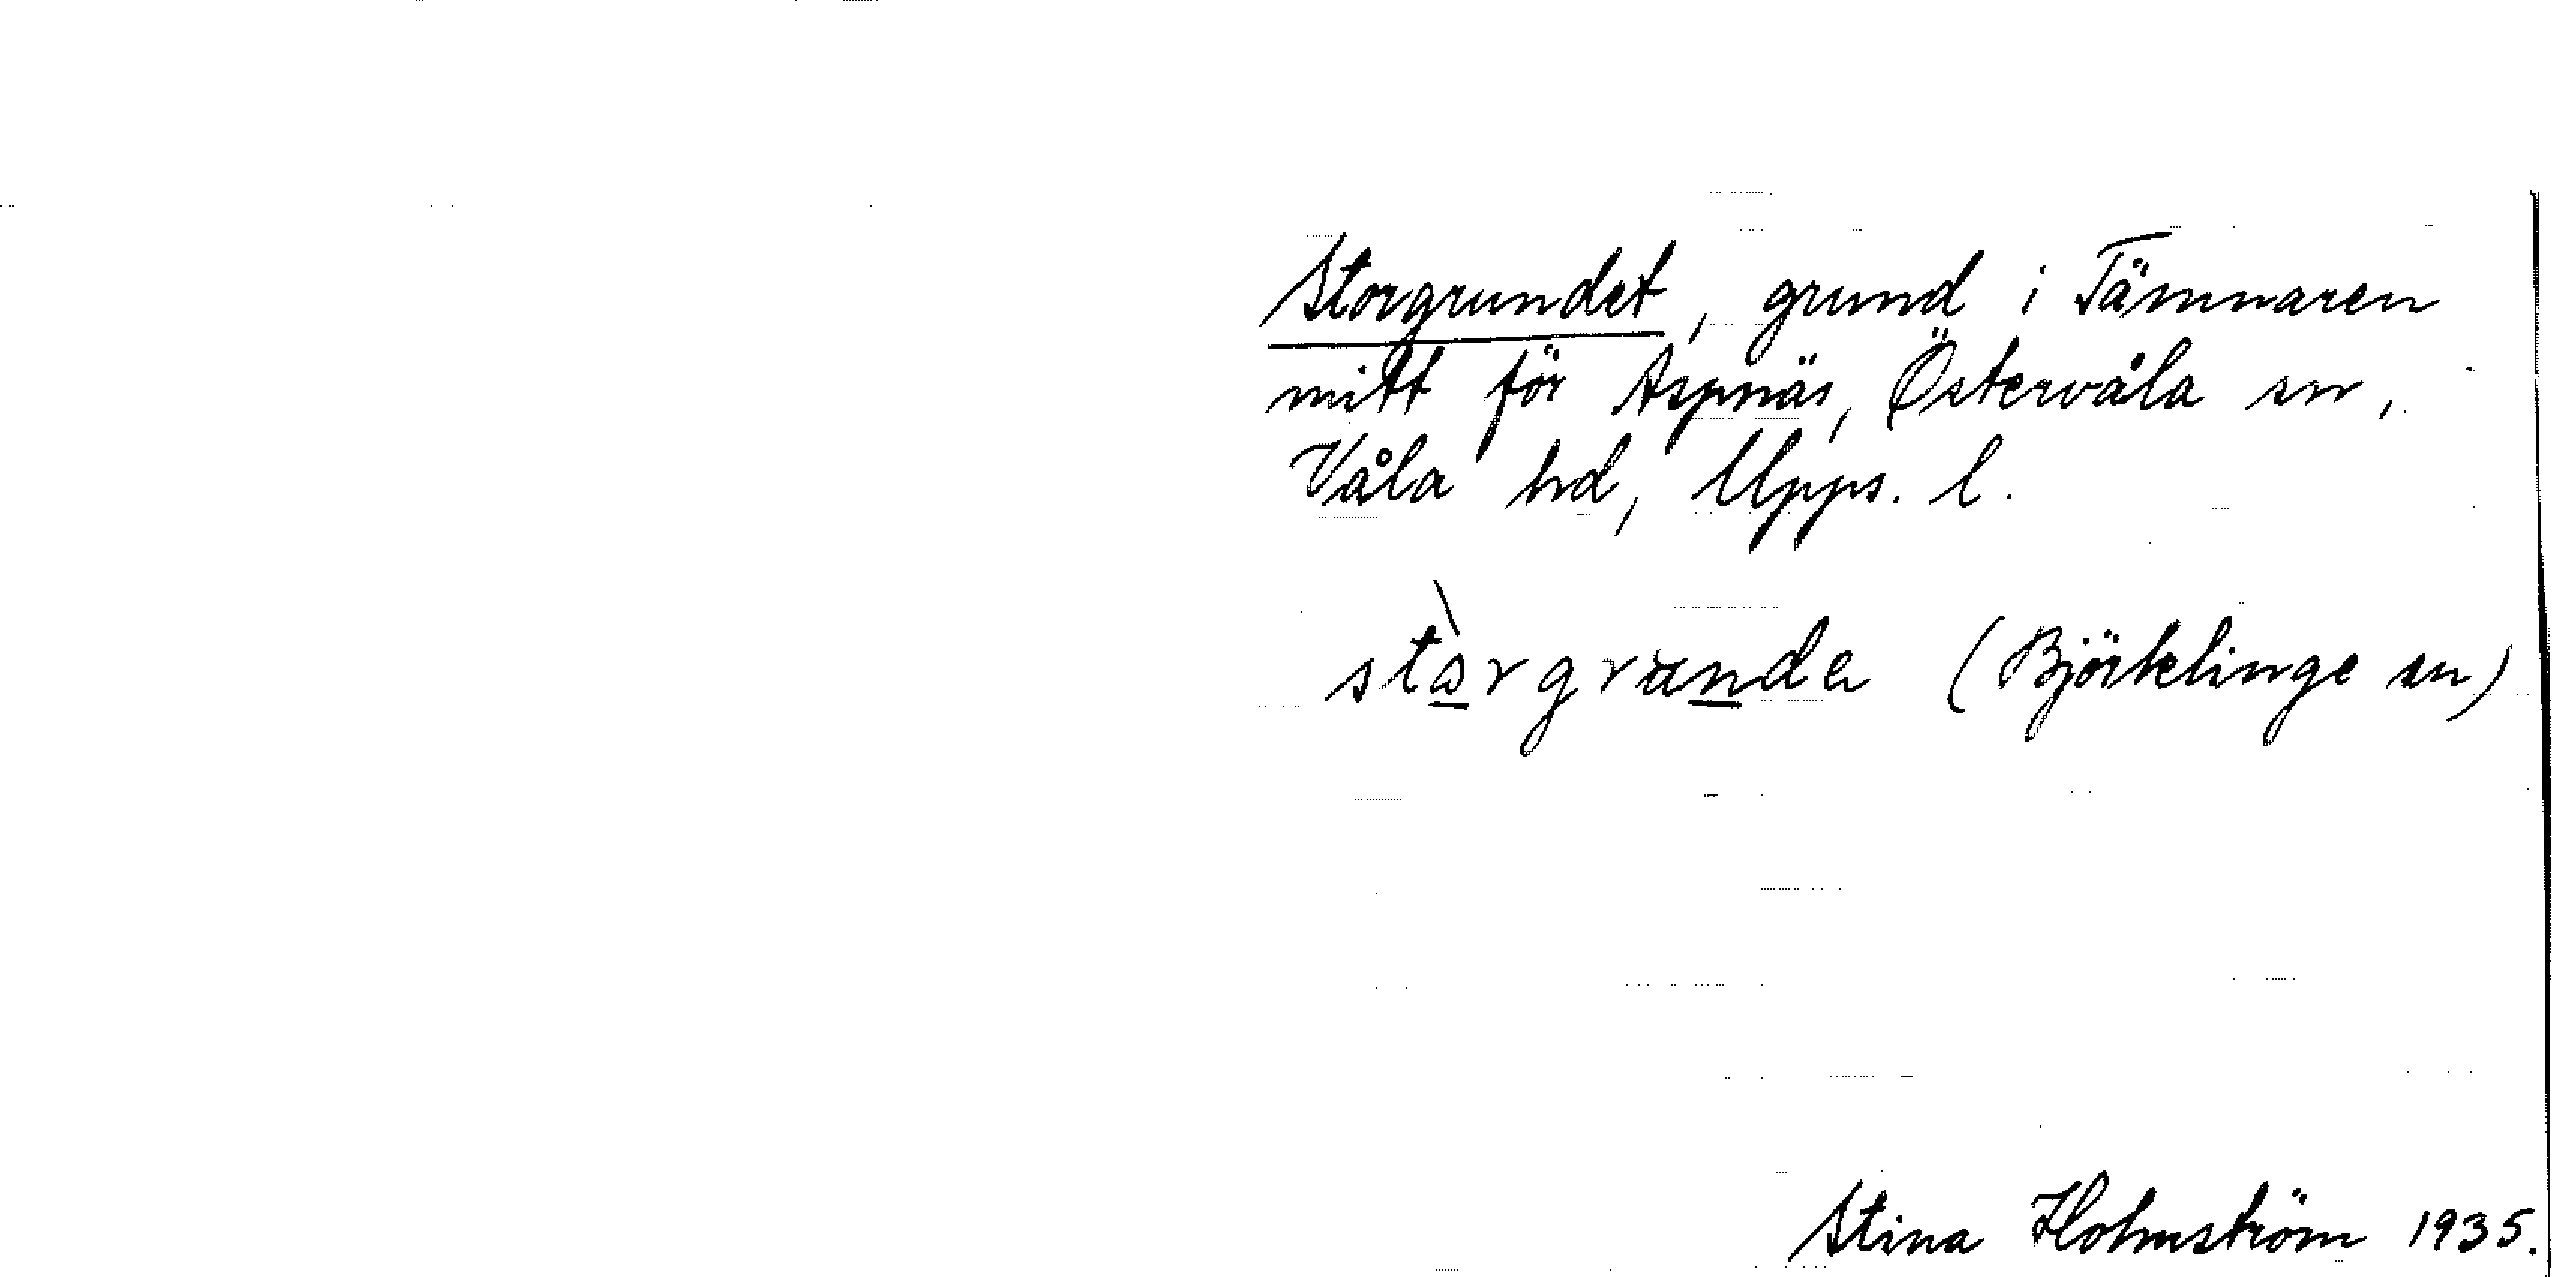 Storgrundet, grund i Tämnaren
mitt för Aspnäs, Östervåla sn,
Våla hd, Upps. l.
(Björklinge sn)
Stina Holmström 1935.